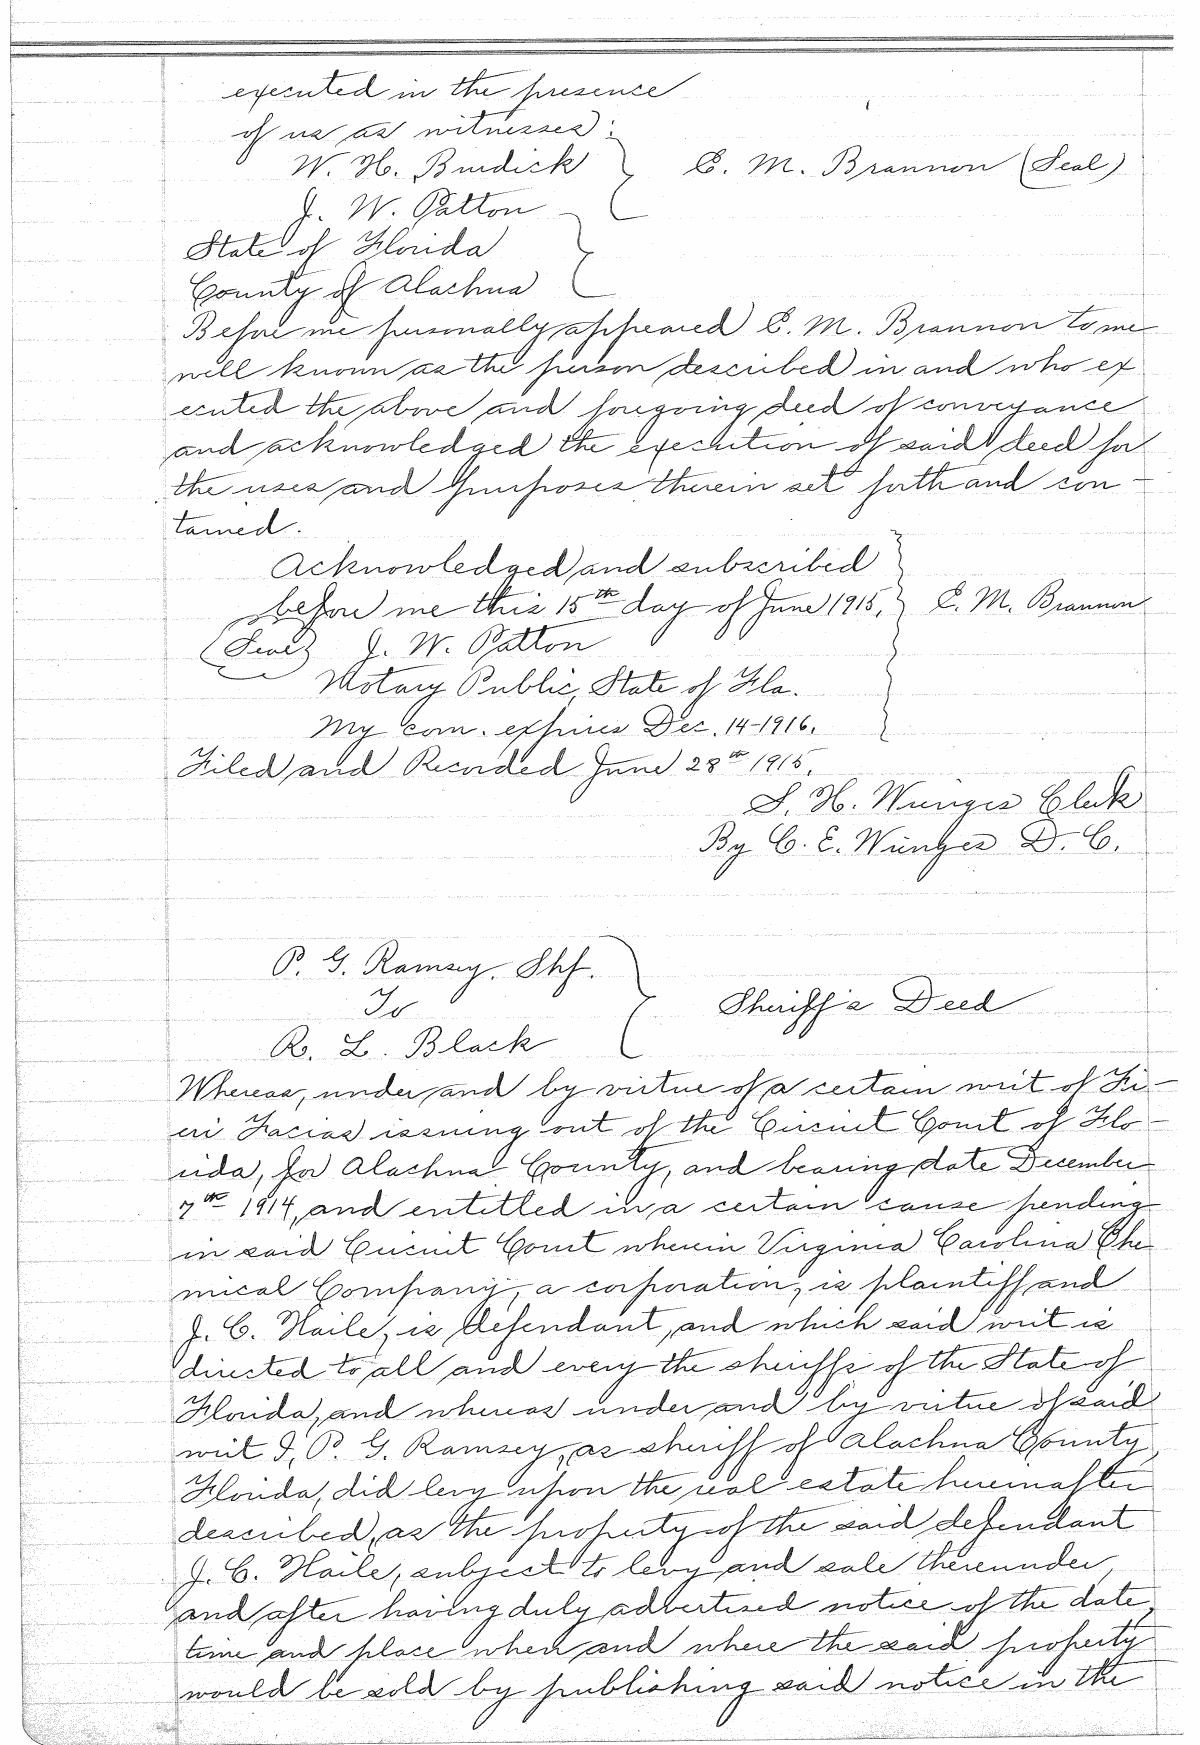 executed in the presence
of us as witnesses:
W. H. Burdick E. M. Brannon (Seal)
J. W. Patton
State of Florida
County of Alachua
Before me personally appeared E. M. Brannon to me
well known as the person described in and who ex
ecuted the above and foregoing deed of conveyance
and acknowledged the execution of said deed for
the uses and purposes therein set forth and con-
tained.
Acknowledged and subscribed
before me this 15th day of June 1915, E. M. Brannon
(Seal) J. W. Patton
Notary Public, State of Fla.
My com. expires Dec. 14-1916.
Filed and Recorded June 28th 1915.
S. H. Wienges Clerk
By C. E. Wienges D. C.
P. G. Ramsey. Shf.
To Sheriff's Deed
R. L. Black
Whereas, under and by virtue of a certain writ of Fi-
eri Facias issuing out of the Circuit Court of Flo-
rida, for Alachua County, and bearing date December
7th 1914, and entitled in a certain cause pending
in said Circuit Court wherein Virginia Carolina Che
mical Company, a corporation, is plaintiff and
J. C. Haile, is defendant, and which said writ is
directed to all and every the sheriffs of the State of
Florida, and whereas under and by virtue of said
writ I, P. G. Ramsey, as sheriff of Alachua County,
Florida, did levy upon the real estate hereinafter
described, as the property of the said defendant
J. C. Haile, subject to levy and sale thereunder,
and after having duly advertised notice of the date,
time and place when and where the said property
would be sold by publishing said notice in the